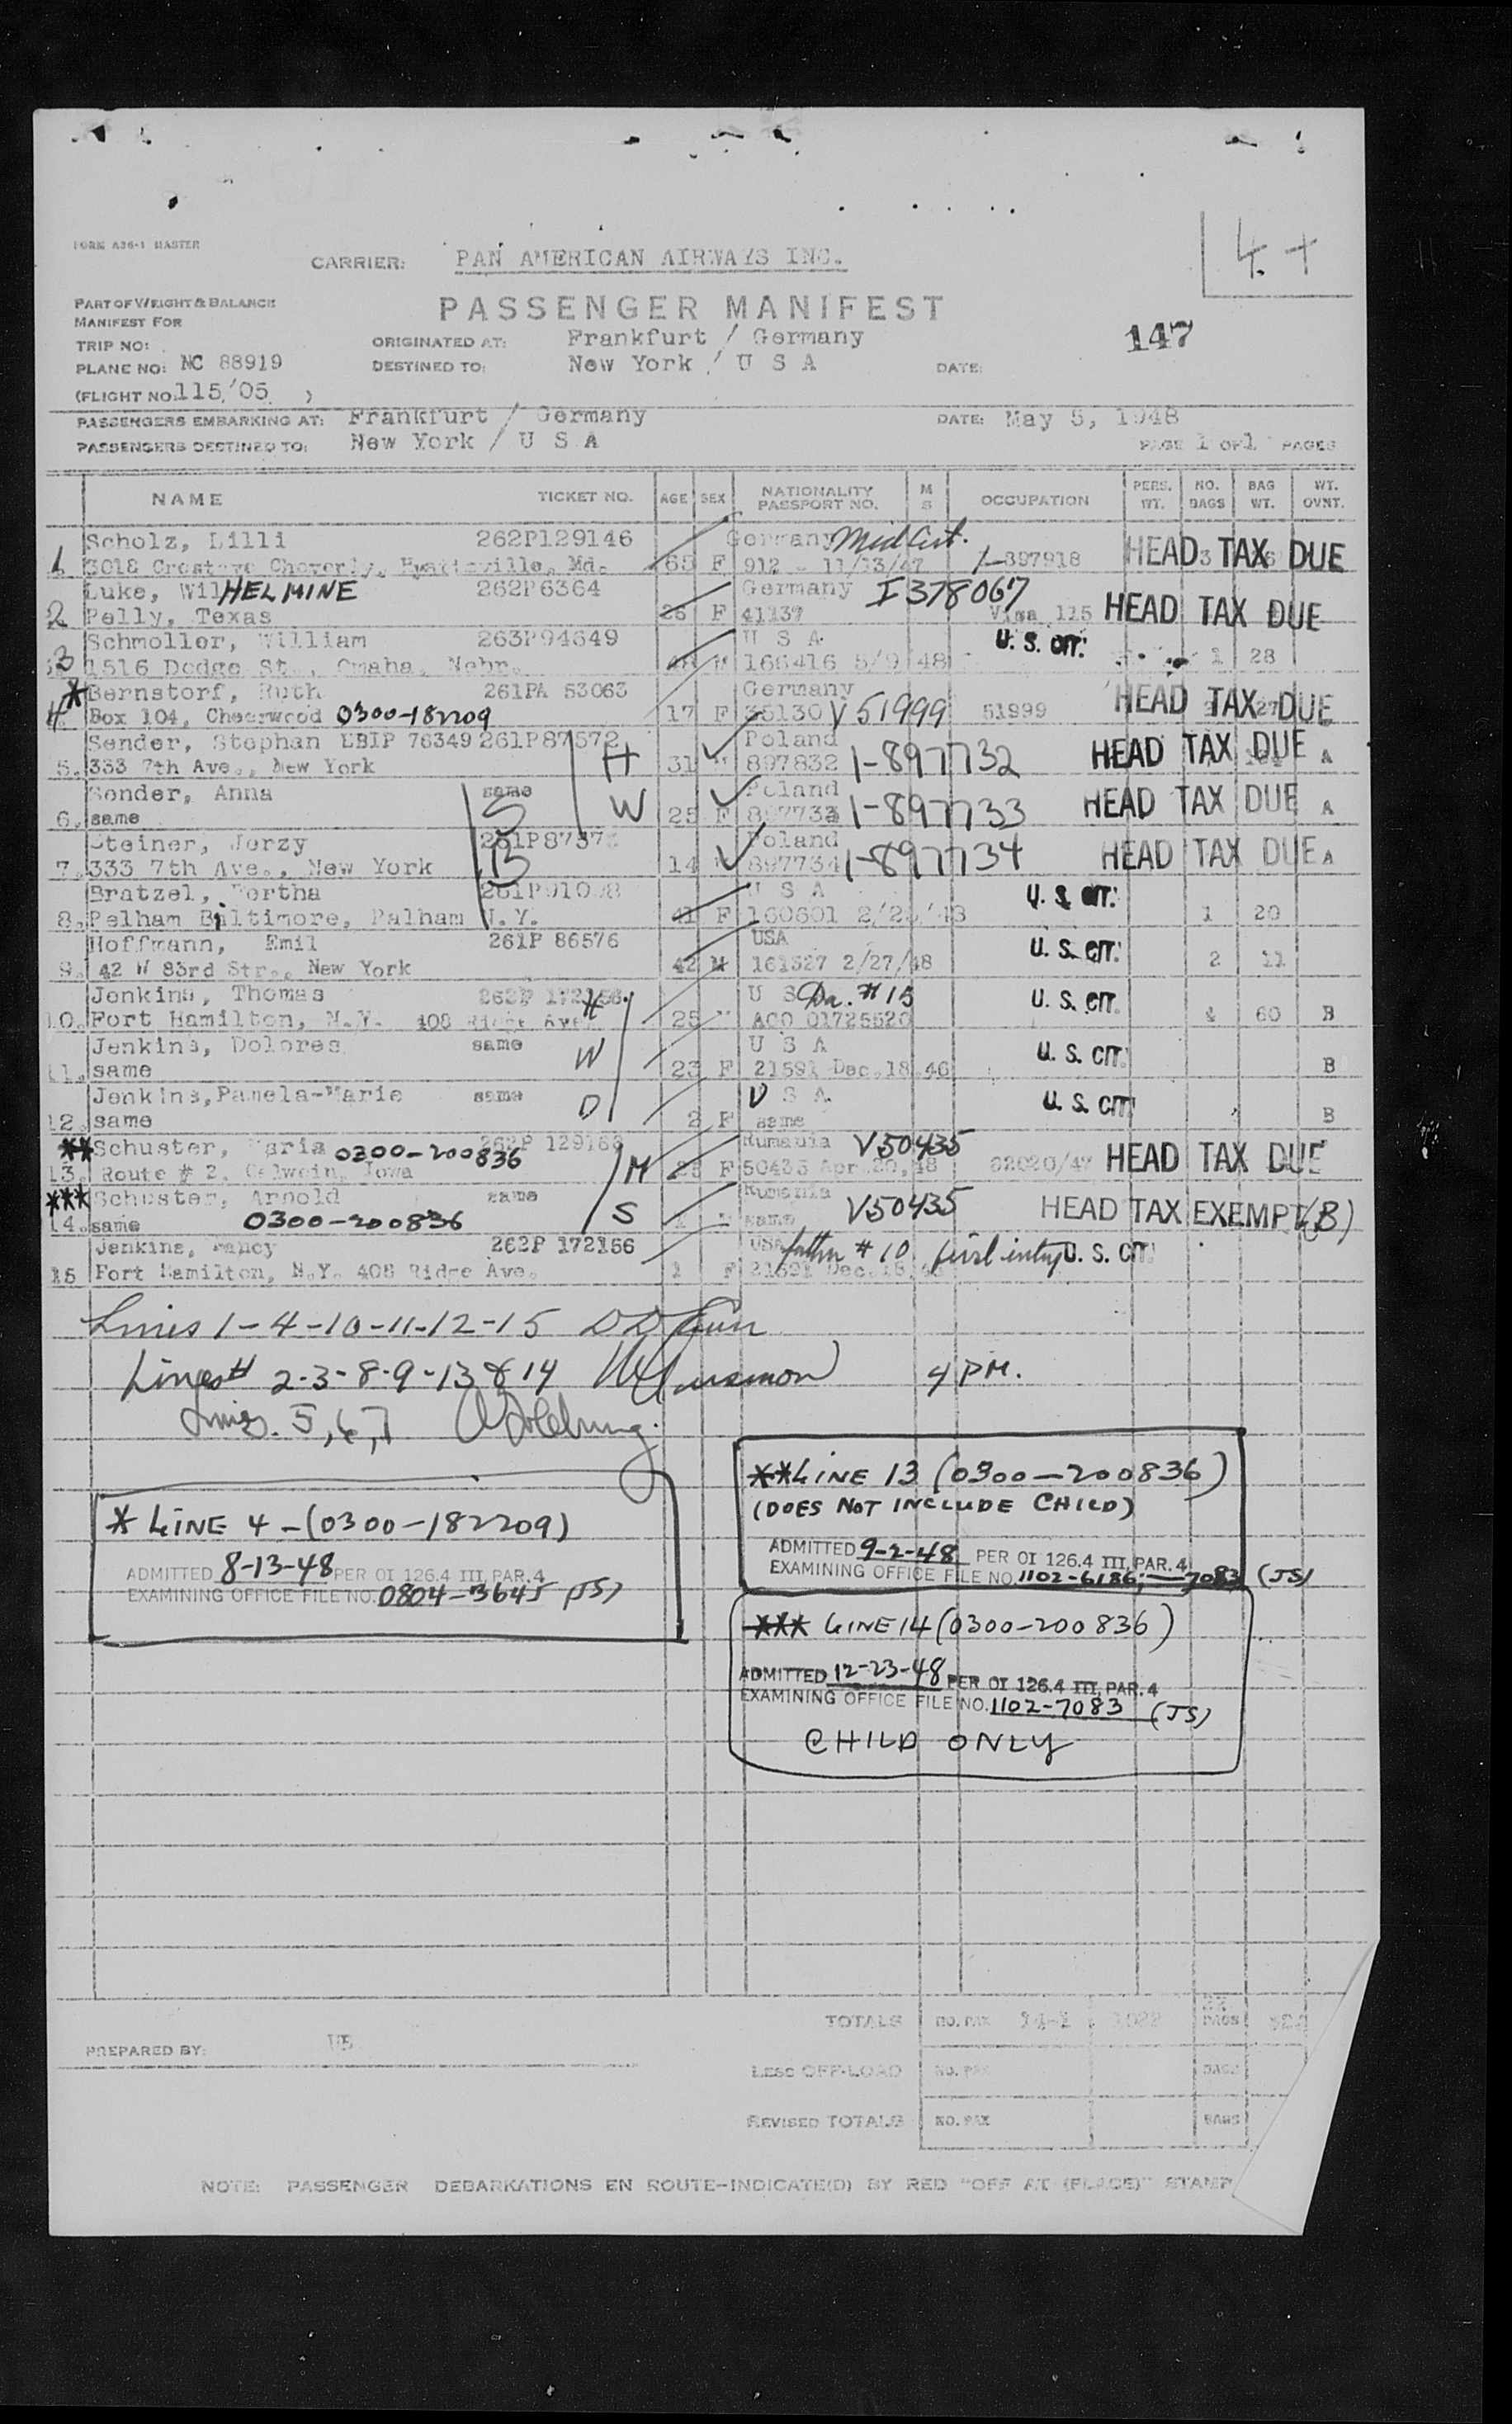 FORM A36-1 MASTER
4. +
CARRIER: PAN AMERICAN AIRWAYS INC.
PART OF WEIGHT & BALANCE
MANIFEST FOR
PASSENGER MANIFEST
147
TRIP NO:
ORIGINATED AT: Frankfurt / Germany
PLANE NO: NC 88919
DESTINED TO: New York / U S A
DATE:
(FLIGHT NO. 115/05 )
PASSENGERS EMBARKING AT: Frankfurt / Germany
DATE: May 5, 1948
PASSENGERS DESTINED TO: New York / U S A
PAGE 1 OF 1 PAGES
NAME TICKET NO. AGE SEX NATIONALITY PASSPORT NO. M S OCCUPATION PERS. WT. NO. BAGS BAG WT. WT. OVNT.
Scholz, Lilli 262P129146 Germany Med Cert.
1. 3018 Cheverly, Hyattsville, Md. 65 F 912 - 11/13/47 1-897918 HEAD TAX DUE
Luke, WilHELMINE 262P6364 Germany I378067
2 Pelly, Texas 26 F 41137 Visa 115 HEAD TAX DUE
Schmoller, William 263P94649 U S A U.S. CIT.
3 1516 Dodge St., Omaha, Nebr. 48 M 166416 5/9/48 1 28
* Bernstorf, Ruth 261PA 53063 Germany
4. Box 104, Cheerwood 0300-182209 17 F 35130 V51999 51999 HEAD TAX DUE
Sender, Stephan EBIP 76349 261P87572 Poland
5. 333 7th Ave., New York H 31 M 897832 1-897732 HEAD TAX DUE A
Sender, Anna same Poland
6. same W 25 F 897733 1-897733 HEAD TAX DUE A
Steiner, Jerzy Poland
7. 333 7th Ave., New York B 14 897734 1-897734 HEAD TAX DUE A
Bratzel, Bertha U S A U.S. CIT.
8. Pelham Baltimore, Palham N.Y. 41 F 160601 1 20
Hoffmann, Emil 261P 86576 USA U.S. CIT.
9. 42 W 83rd Str., New York 42 M 161327 2/27/48 2 11
Jenkins, Thomas H U S Da. #15 U.S. CIT.
10. Fort Hamilton, N.Y. 408 Ridge Ave. 25 M AGO 01725520 4 60 B
Jenkins, Dolores same U S A U.S. CIT.
11. same W 23 F 21591 Dec.18.46 B
Jenkins, Pamela-Marie same U S A U.S. CIT.
12. same D 2 F same B
** Schuster, Maria 0300-200836 Rumania V50435
13. Route # 2, Oelwein, Iowa M 25 F 50435 Apr.20,48 62020/47 HEAD TAX DUE
*** Schuster, Arnold same Rumania V50435
14. same 0300-200836 S 1 M same HEAD TAX EXEMPT (B)
Jenkins, Nancy 262P 172156 USA father #10 first entry U.S. CIT.
15 Fort Hamilton, N.Y. 408 Ridge Ave. 1 F
Lines 1-4-10-11-12-15
Lines# 2-3-8-9-13&14 4 PM.
Lines. 5,6,7
* LINE 4 - (0300-182209)
ADMITTED 8-13-48 PER OI 126.4 III, PAR. 4
EXAMINING OFFICE FILE NO. 0804-3645 (JS)
** LINE 13 (0300-200836)
(DOES NOT INCLUDE CHILD)
ADMITTED 9-2-48 PER OI 126.4 III, PAR. 4
EXAMINING OFFICE FILE NO. 1102-6186; 7083 (JS)
*** LINE 14 (0300-200836)
ADMITTED 12-23-48 PER OI 126.4 III, PAR. 4
EXAMINING OFFICE FILE NO. 1102-7083 (JS)
CHILD ONLY
TOTALS NO. PAX 14-1 1022 BAGS
PREPARED BY:
LESS OFF-LOAD NO. PAX BAGS
REVISED TOTALS NO. PAX BAGS
NOTE: PASSENGER DEBARKATIONS EN ROUTE-INDICATE(D) BY RED "OFF AT (PLACE)" STAMP